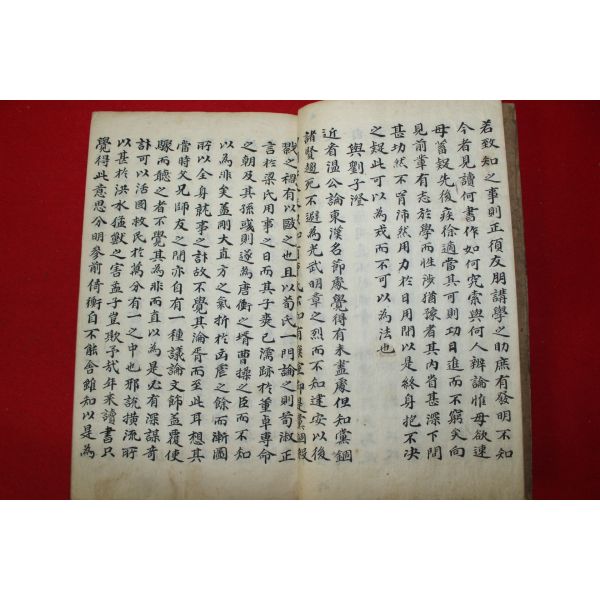 若致知之事則正須友朋講學之助庶有發明不知
今者見讀何書作如何究索與何人辨論惟毋欲速
毋蓄疑先後疾徐適當其可則功日進而不窮矣向
見前輩有志於學而性涉猶豫者其內省甚深下問
甚切然不肯沛然用力於日用間以是終身抱不决
之疑此可以為戒而不可以為法也
與劉子澄
近看溫公論東漢名節處覺得有未盡處但知黨錮
諸賢趨死不避為光武明章之烈而不知建安以後
言於梁氏用事之日而其子爽已濡跡於董卓專命
之朝及其孫彧則遂為唐衡之壻曹操之臣而不知
以為非矣盖剛大直方之氣折於凶虐之餘而漸圖
所以全身就事之計故不覺其淪胥而至此耳想其
當時父兄師友之間亦自有一種議論文飾盖覆使
驟而聽之者不覺其為非而直以為是必有深謀奇
計可以活國救民於萬分有一之中也邪說橫流所
以甚於洪水猛獸之害孟子豈欺予哉年來讀書只
覺得此意思分明參前倚衡自不能舍雖知以是為